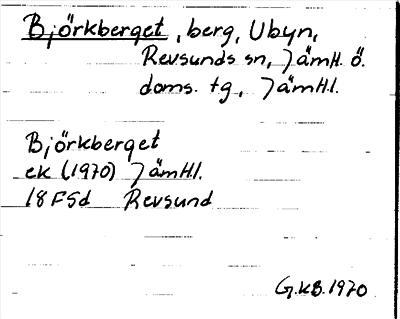 Björkberget, berg, Ubyn,
Revsunds sn, Jämtl. ö.
doms. tg, Jämtl.
Björkberget
ek (1970) Jämtl.
18FSd Revsund
G.KB.1970